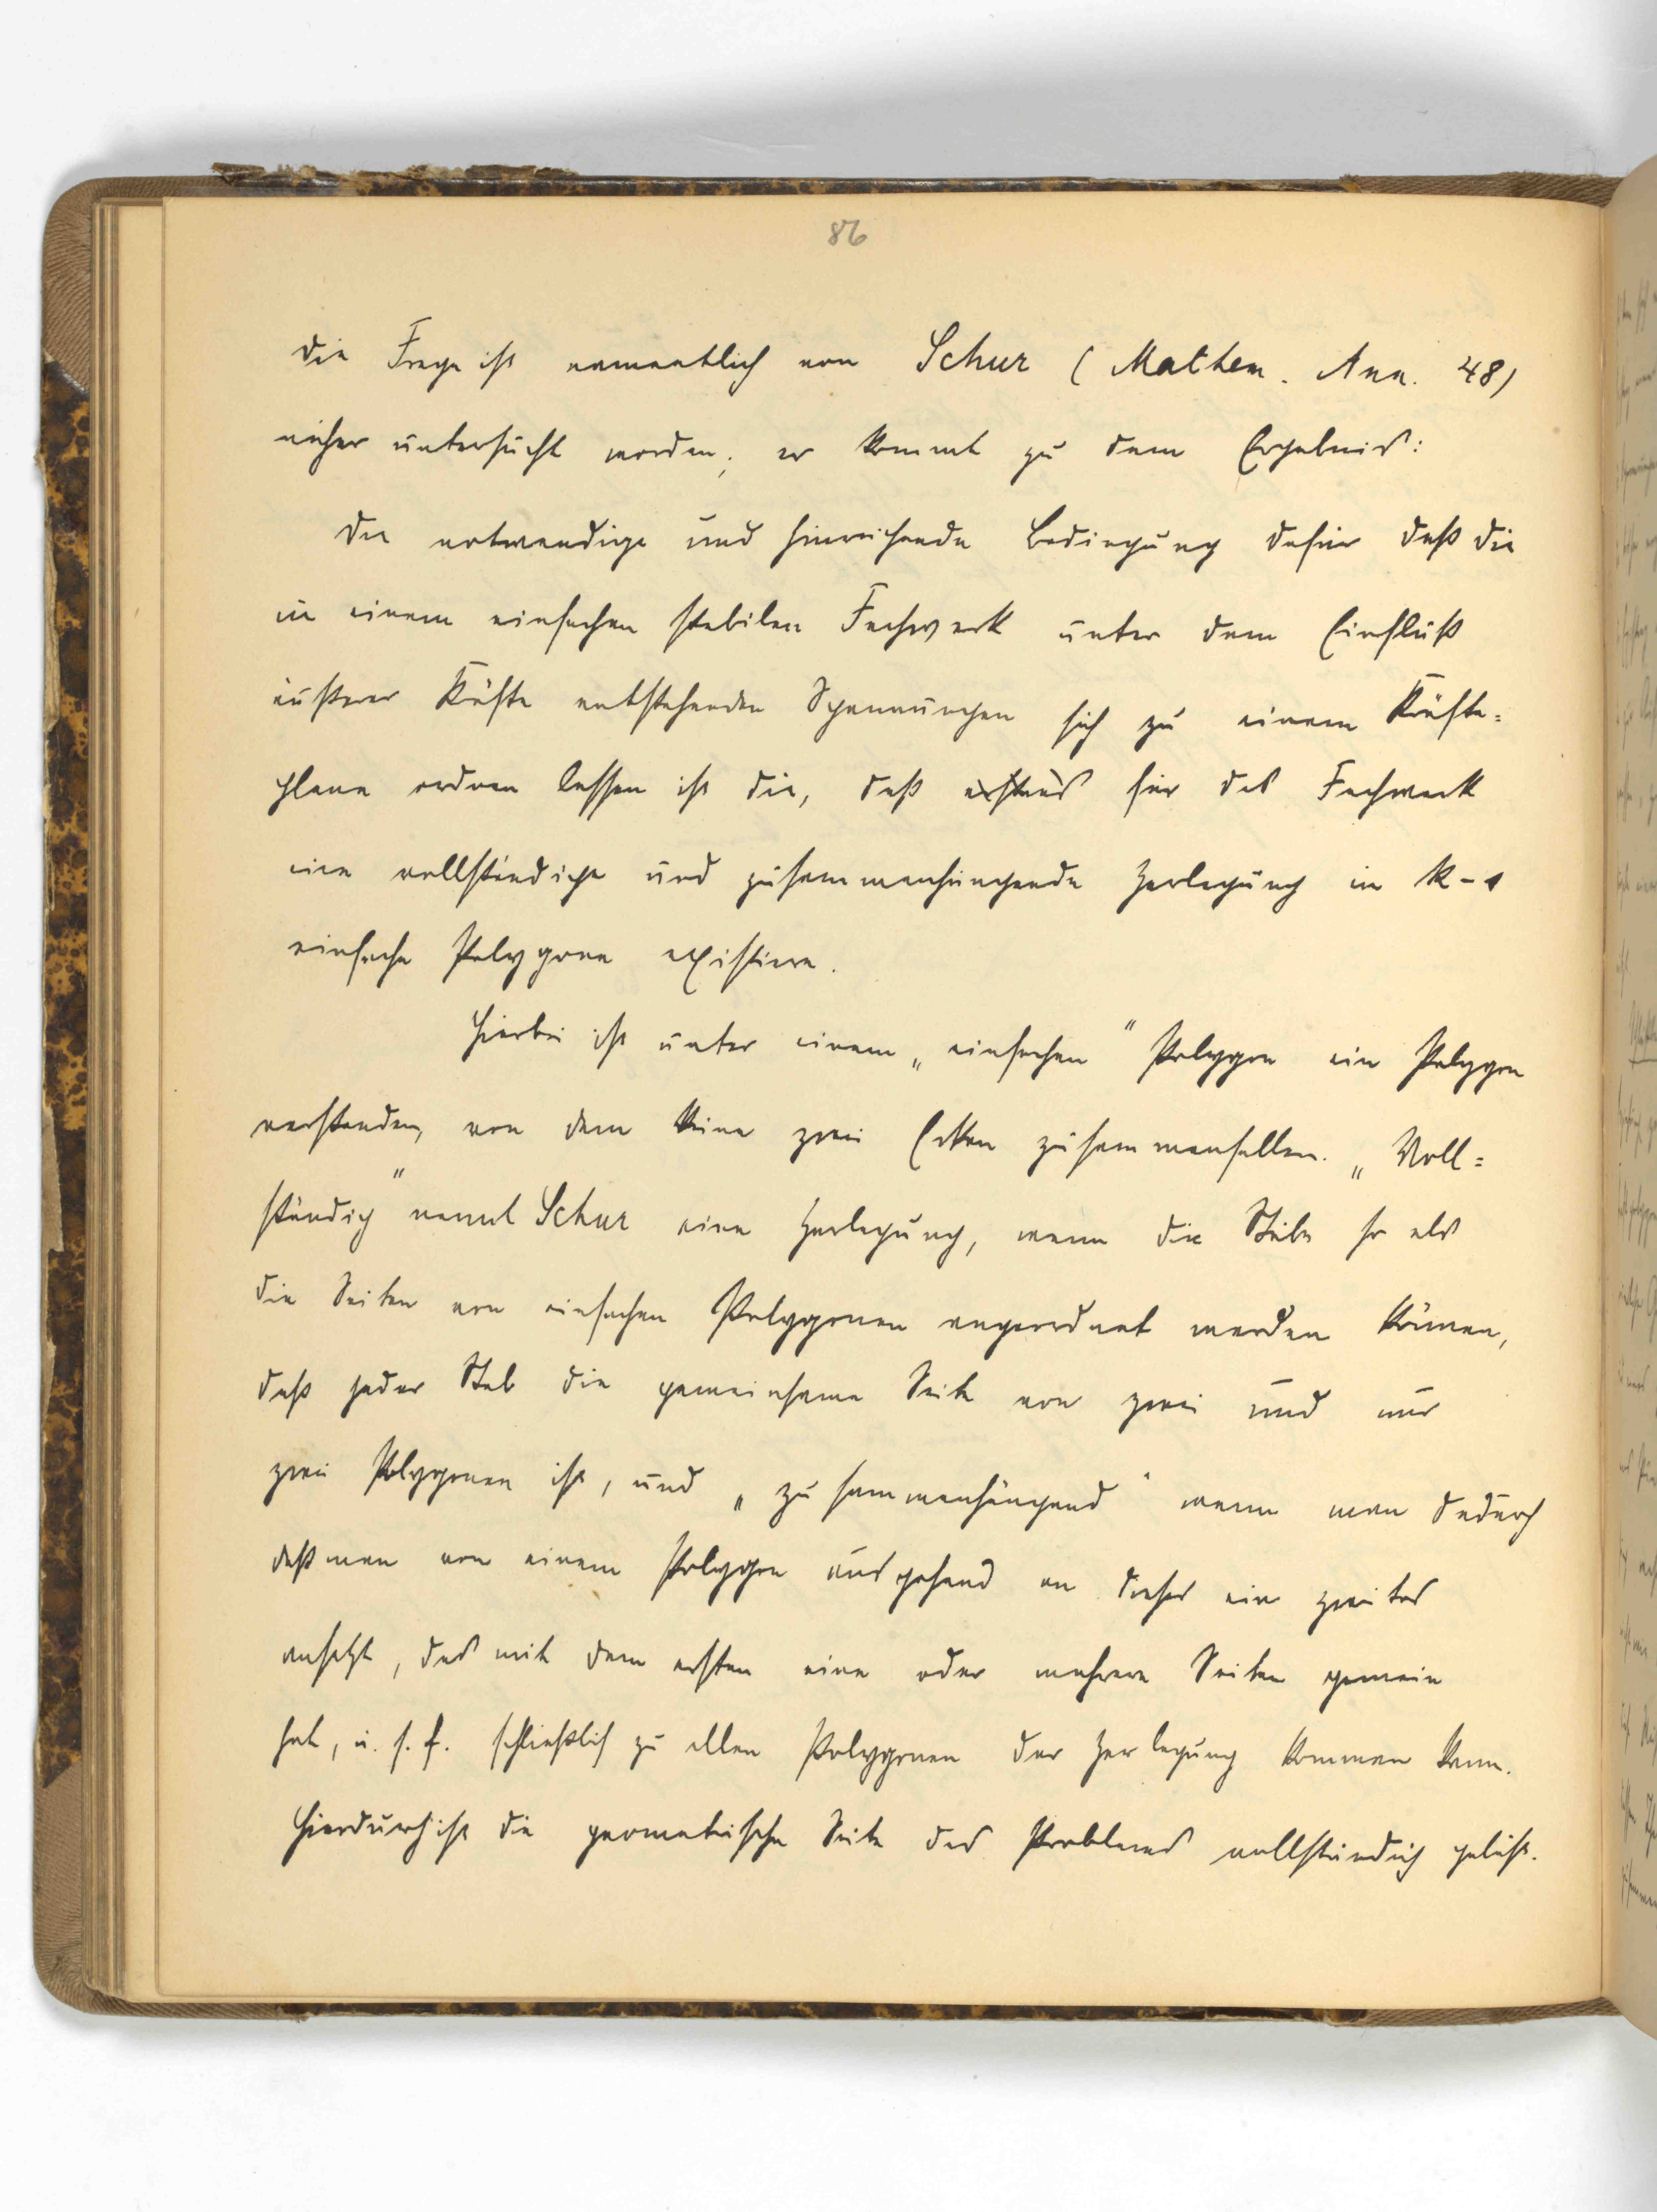 86
die Frage ist namentlich von Schur (Mathem. Ann. 48)
näher untersucht worden; er kommt zu dem Ergebnis:
Die notwendige und hinreichende Bedingung dafür daß die
in einem einfachen stabilen Fachwerk unter dem Einfluß
äußerer Kräfte entstehenden Spannungen sich zu einem Kräfte=
plane ordnen lassen ist die, daß erstens für das Fachwerk
eine vollständige und zusammenhängende Zerlegung in k-1
einfache Polygone existiere.
Hierbei ist unter einem „einfachen" Polygon ein Polygon
verstanden, von dem keine zwei Ecken zusammenfallen. „Voll=
ständig" nennt Schur eine Zerlegung, wenn die Stäbe so als
die Seiten von einfachen Polygonen angeordnet werden können,
daß jeder Stab die gemeinsame Seite von zwei und nur
zwei Polygonen ist, und „zusammenhängend" wenn man dadurch
daß man von einem Polygon ausgehend an dieses ein zweites
ansetzt, das mit dem ersten eine oder mehrere Seiten gemein
hat, u. s. f. schließlich zu allen Polygonen der Zerlegung kommen kann.
Hierdurch ist die geometrische Seite des Problems vollständig gelöst.